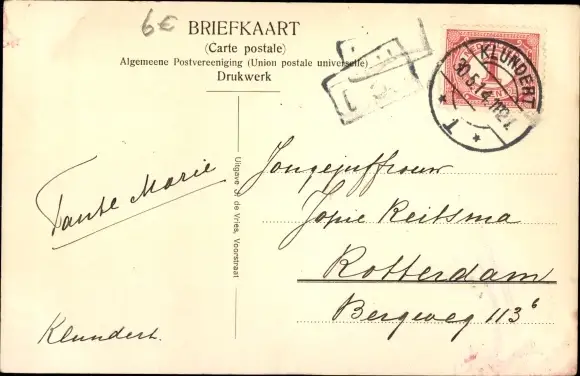 6€
BRIEFKAART
(Carte postale)
Algemeene Postvereeniging (Union postale universelle)
Drukwerk
1
KLUNDERT
30.5.14.11-12V
T
Tante Marie
Klundert.
de Vries, Voorstraat
Jongejuffrouw
Jopie Reitsma
Rotterdam
Bergweg 113 b